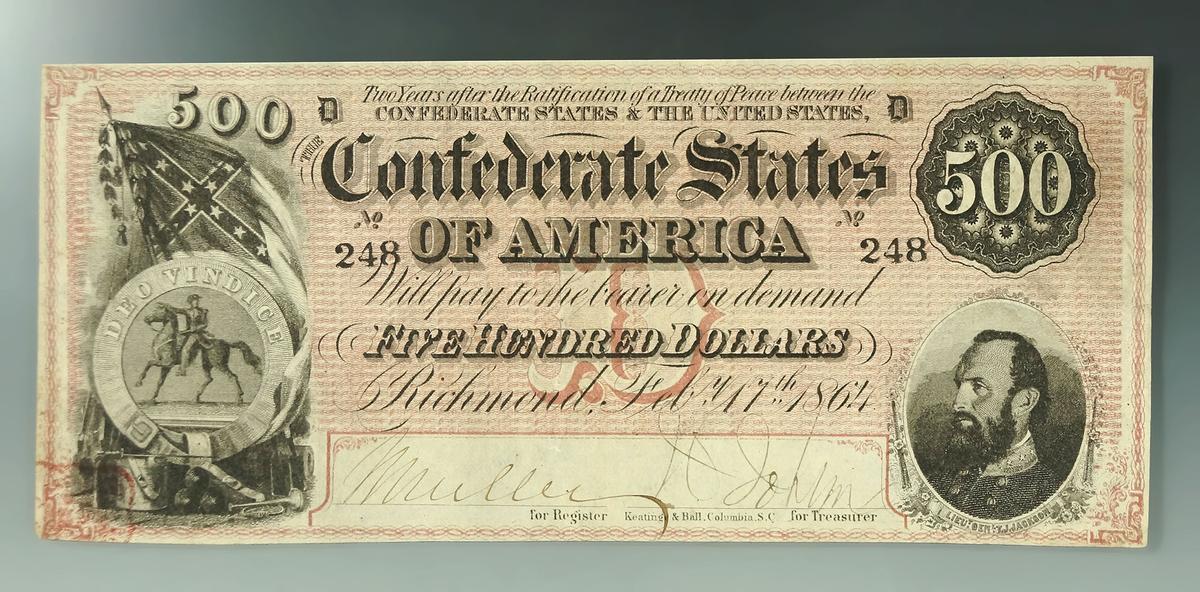 500
D Two Years after the Ratification of a Treaty of Peace between the D
CONFEDERATE STATES & THE UNITED STATES,
THE
Confederate States
500
No No
248 OF AMERICA 248
DEO VINDICE
Will pay to the bearer on demand
FIVE HUNDRED DOLLARS
Richmond, Feb'y 17th 1864
for Register Keating & Ball, Columbia, S.C for Treasurer
LIEUT GEN. T.J. JACKSON